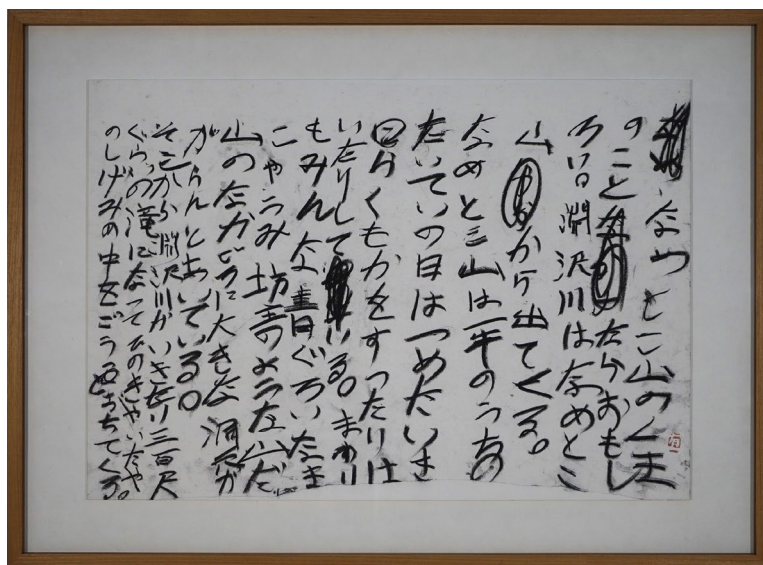 なめとこ山のくま
のことならおもし
ろい。淵沢川はなめとこ
山から出てくる。
なめとこ山は一年のうちの
たいていの日はつめたいき
りかくもかをすったりは
いたりしている。まわり
もみんな青ぐろいなま
こやうみ坊主のような山だ。
山のなかごろに大きな洞穴が
がらんとあいている。
そこから淵沢川がいきなり三百尺
ぐらいの滝になってひのきやいたや
のしげみの中をごうとおちてくる。